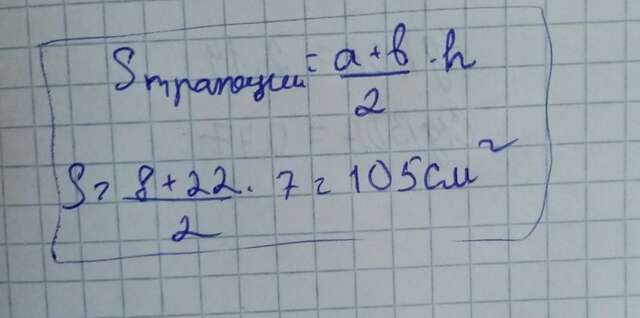 Sтрапеции = a+b/2 · h
S = 8+22/2 · 7 = 105 см²